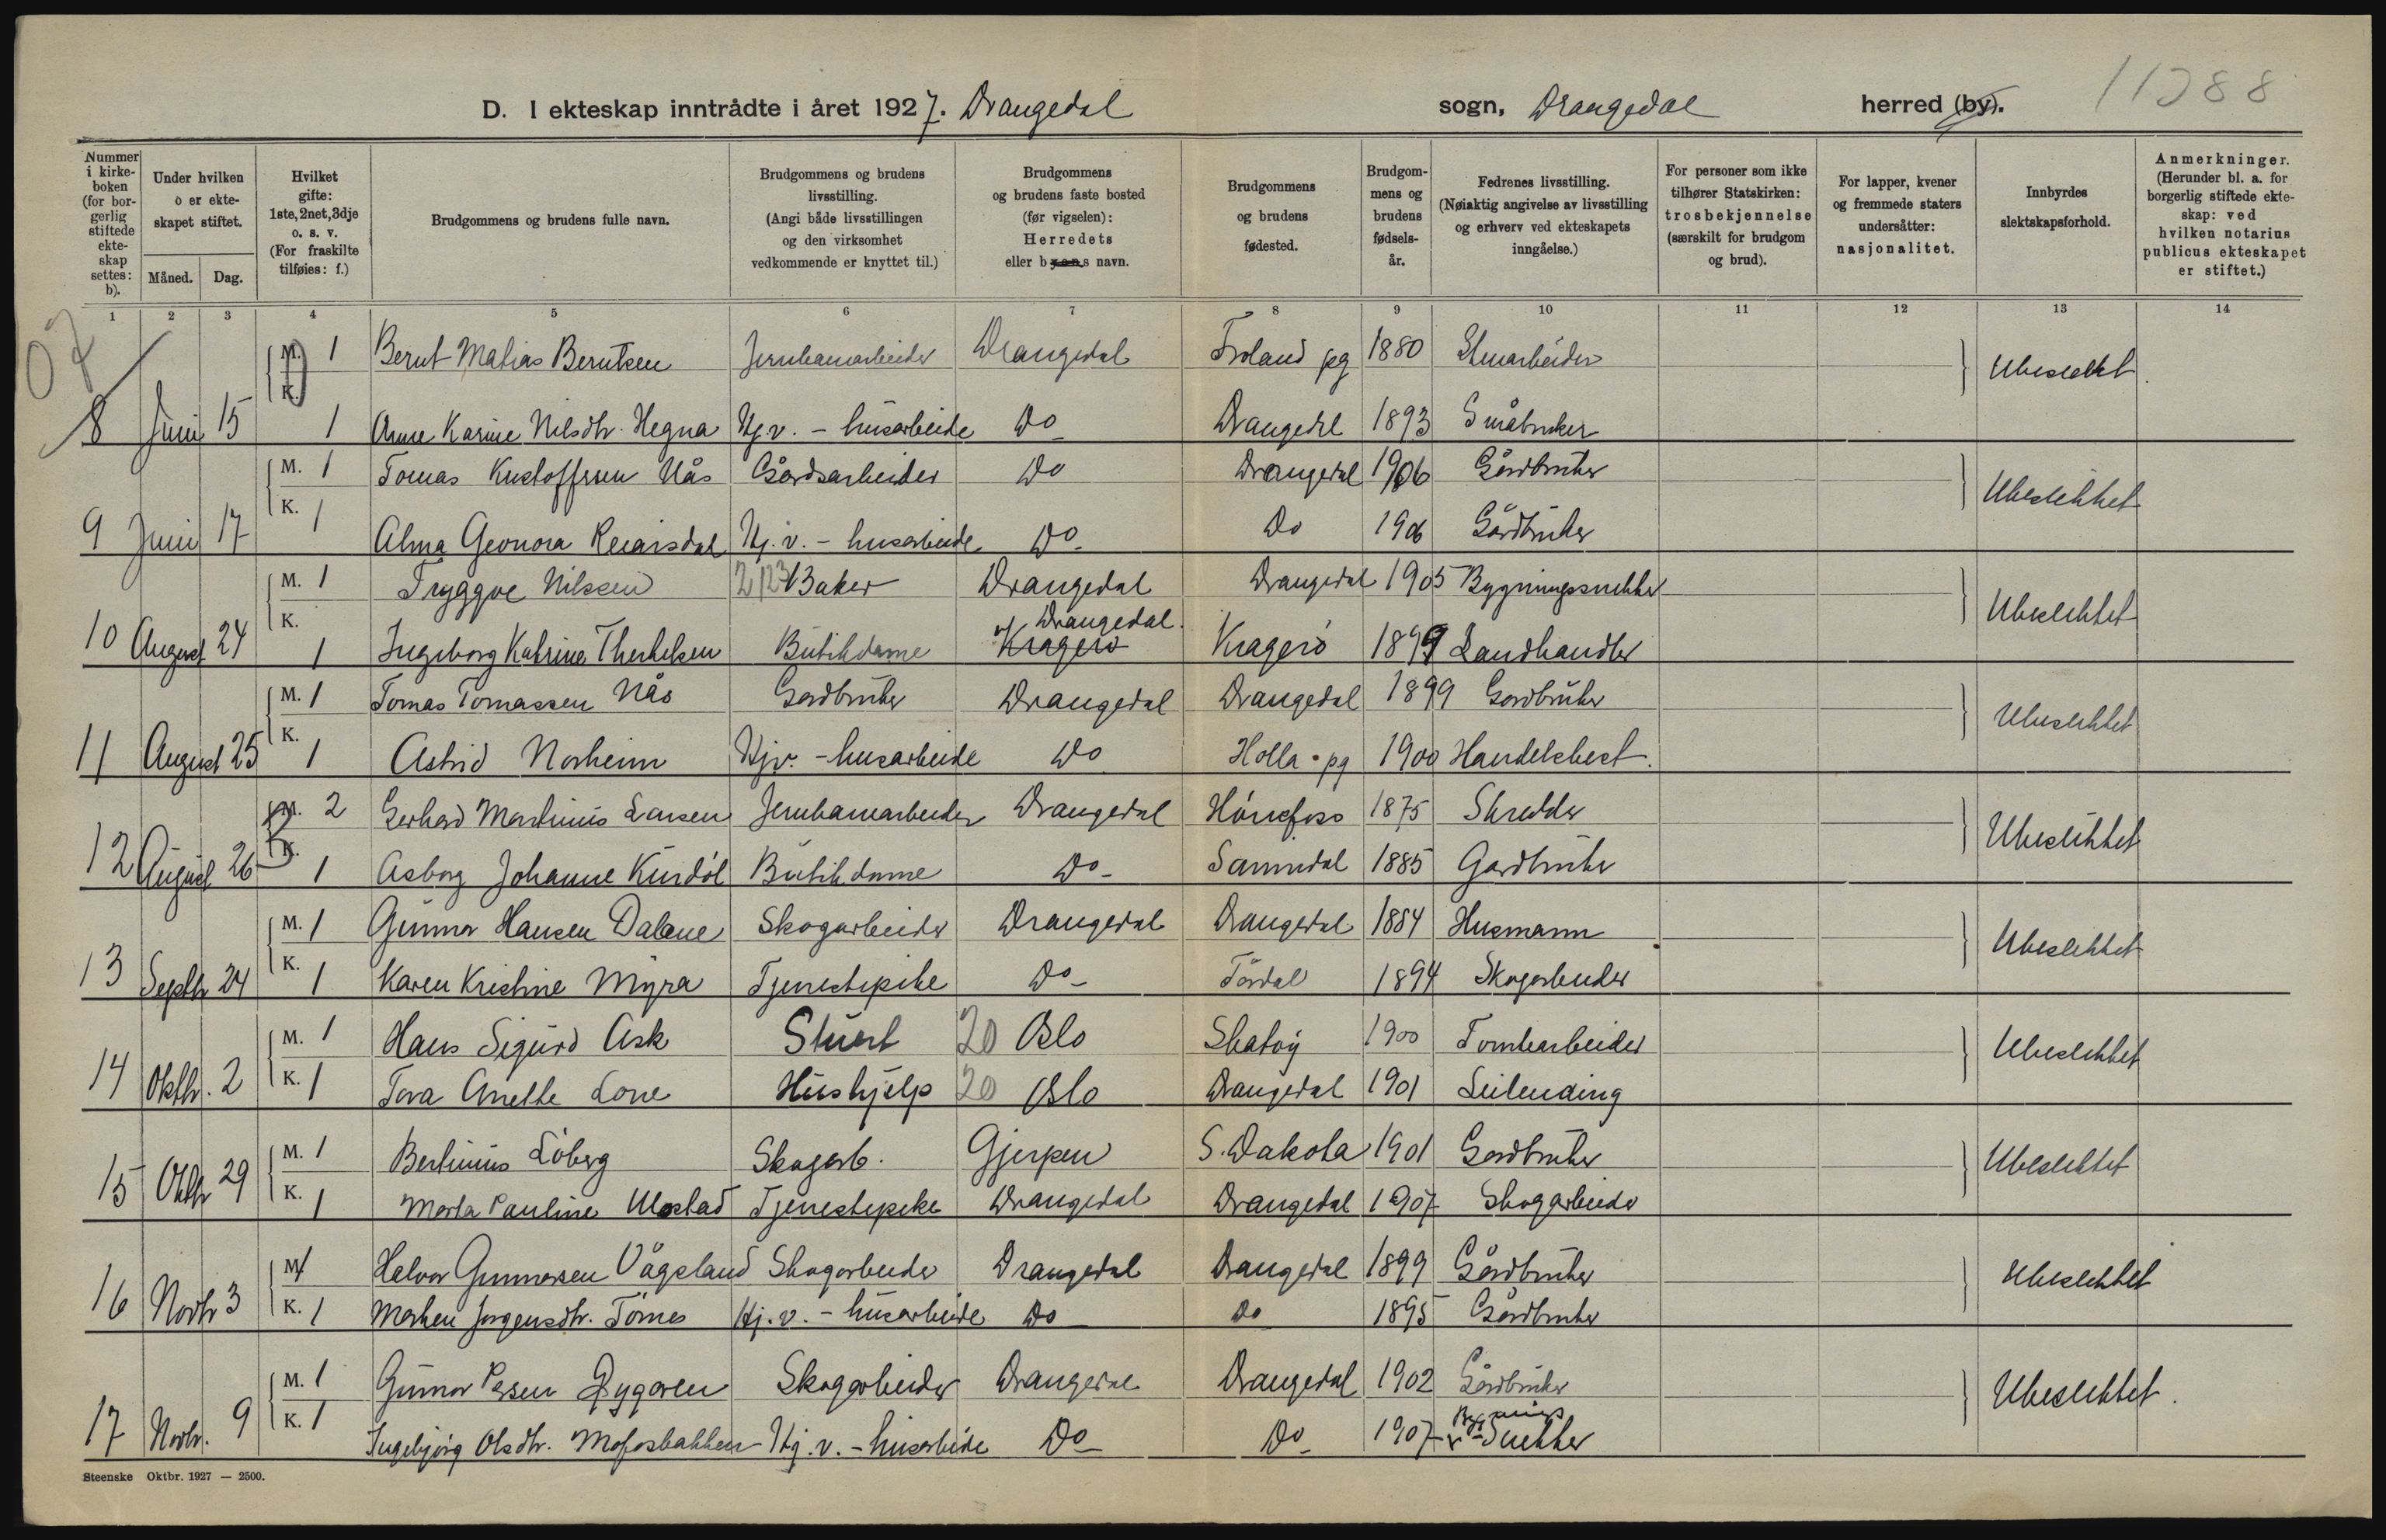 11288
D. I ekteskap inntrådte i året 1927. Drangedal sogn, Drangedal herred (by).
Nummer i kirkeboken (for borgerlig stiftede ekteskap settes: b).
Under hvilken
o er ekteskapet stiftet.
Måned. Dag.
Hvilket gifte: 1ste, 2net, 3dje o. s. v. (For fraskilte tilføies: f.)
Brudgommens og brudens fulle navn.
Brudgommens og brudens livsstilling. (Angi både livsstillingen og den virksomhet vedkommende er knyttet til.)
Brudgommens og brudens faste bosted (før vigselen): Herredets eller byens navn.
Brudgommens og brudens fødested.
Brudgommens og brudens fødselsår.
Fedrenes livsstilling. (Nøiaktig angivelse av livsstilling og erhverv ved ekteskapets inngåelse.)
For personer som ikke tilhører Statskirken: trosbekjennelse (særskilt for brudgom og brud).
For lapper, kvener og fremmede staters undersåtter: nasjonalitet.
Innbyrdes slektskapsforhold.
Anmerkninger. (Herunder bl. a. for borgerlig stiftede ekteskap: ved hvilken notarius publicus ekteskapet er stiftet.)
1 2 3 4 5 6 7 8 9 10 11 12 13 14
07
M. 1 Bernt Matias Berntsen Jernbanearbeider Drangedal Froland pg 1880 Stenarbeider Ubeslektet
8 Juni 15 K. 1 Anne Karine Nilsdtr. Hegna Hj.v. - husarbeide Do Drangedal 1893 Småbruker
M. 1 Tomas Kristoffersen Nås Gårdsarbeider Do Drangedal 1906 Gårdbruker Ubeslektet
9 Juni 17 K. 1 Alma Geonora Reiarsdal Hj.v. - husarbeide Do Do 1906 Gårdbruker
M. 1 Tryggve Nilssen 2123 Baker Drangedal Drangedal 1905 Bygningssnekker Ubeslektet
Drangedal.
10 August 24 K. 1 Ingeborg Katrine Therkelsen Butikdame Kragerö Kragerö 1899 Landhandler
M. 1 Tomas Tomassen Nås Gardbruker Drangedal Drangedal 1899 Gardbruker Ubeslektet
11 August 25 K. 1 Astrid Norheim Hjv. - husarbeide Do Holla pg 1900 Handelsbest.
M. 2 Gerhard Martinius Larsen Jernbanearbeider Drangedal Hönefoss 1875 Skredder Ubeslektet
12 August 26 K. 1 Asborg Johanne Kurdöl Butikdame Do Sannidal 1885 Gardbruker
M. 1 Gunnar Hansen Dalene Skogarbeider Drangedal Drangedal 1884 Husmann Ubeslektet
13 Septbr 24 K. 1 Karen Kristine Myra Tjenestepike Do Tördal 1894 Skogarbeider
M. 1 Hans Sigurd Ask Stuert 20 Oslo Skatöy 1900 Tomtearbeider Ubeslektet
14 Oktbr. 2 K. 1 Tora Anette Lone Hushjelp 20 Oslo Drangedal 1901 Leilending
M. 1 Bertinius Löberg Skogarb. Gjerpen S. Dakota 1901 Gardbruker Ubeslektet
15 Oktbr 29 K. 1 Marta Pauline Ulostad Tjenestepike Drangedal Drangedal 1907 Skogarbeider
M. 1 Halvor Gunnarsen Vågsland Skogarbeider Drangedal Drangedal 1899 Gårdbruker Ubeslektet
16 Novbr 3 K. 1 Marken Jorgensdtr. Törnes Hj.v. - husarbeide Do Do 1895 Gårdbruker
M. 1 Gunnar Persen Bygaren Skogarbeider Drangedal Drangedal 1902 Gårdbruker Ubeslektet.
Bygnings
17 Novbr. 9 K. 1 Ingebjörg Olsdtr. Mofosbakken Hj.v. - husarbeide Do Do 1907 Snekker
Steenske Oktbr. 1927 — 2500.